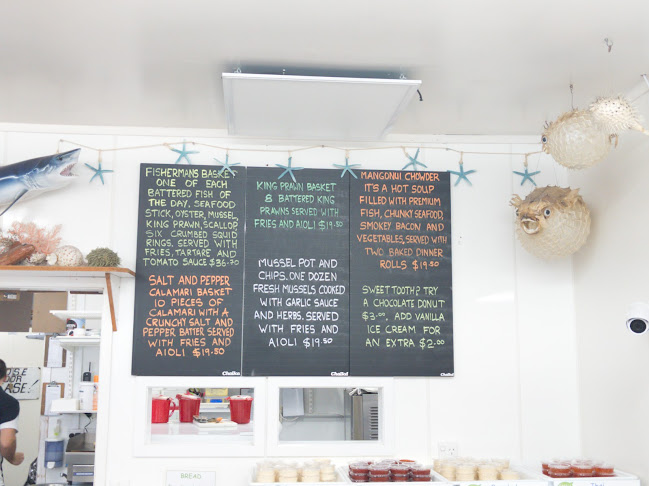 FISHERMANS BASKET
ONE OF EACH
BATTERED FISH OF
THE DAY, SEAFOOD
STICK, OYSTER, MUSSEL,
KING PRAWN, SCALLOP
SIX CRUMBED SQUID
RINGS. SERVED WITH
FRIES, TARTARE AND
TOMATO SAUCE $36.70
SALT AND PEPPER
CALAMARI BASKET
10 PIECES OF
CALAMARI WITH A
CRUNCHY SALT AND
PEPPER BATTER. SERVED
WITH FRIES AND
AIOLI $19.50
KING PRAWN BASKET
8 BATTERED KING
PRAWNS SERVED WITH
FRIES AND AIOLI $19.50
MUSSEL POT AND
CHIPS. ONE DOZEN
FRESH MUSSELS COOKED
WITH GARLIC SAUCE
AND HERBS. SERVED
WITH FRIES AND
AIOLI $19.50
MANGONUI CHOWDER
IT'S A HOT SOUP
FILLED WITH PREMIUM
FISH, CHUNKY SEAFOOD,
SMOKEY BACON AND
VEGETABLES, SERVED WITH
TWO BAKED DINNER
ROLLS $19.50
SWEET TOOTH? TRY
A CHOCOLATE DONUT
$3.00, ADD VANILLA
ICE CREAM FOR
AN EXTRA $2.00
BREAD